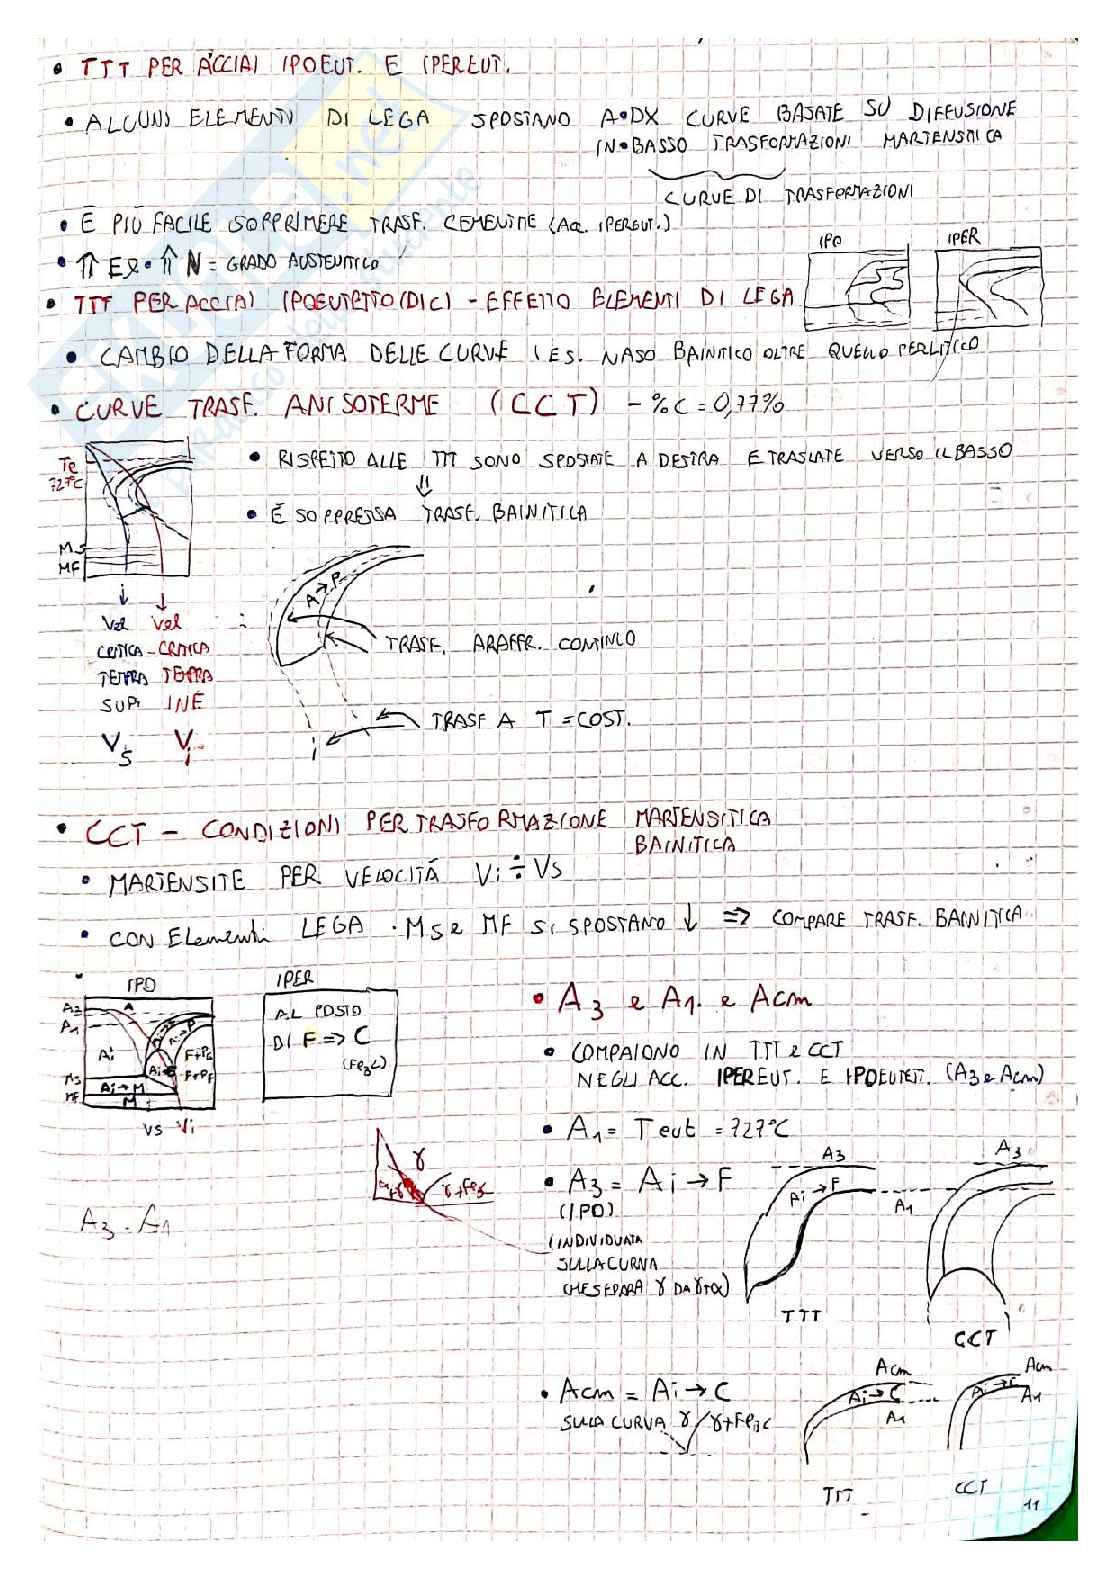 • TTT PER ACCIAI IPOEUT. E IPEREUT.
• ALCUNI ELEMENTI DI LEGA SPOSTANO A•DX CURVE BASATE SU DIFFUSIONE
IN•BASSO TRASFORMAZIONI MARTENSITICA
CURVE DI TRASFORMAZIONI
• È PIÙ FACILE SOPPRIMERE TRASF. CEMENTITE (Acc. IPEREUT.)
IPO IPER
• ⇑ El • ⇑ N = GRADO AUSTENITICO
• TTT PER ACCIAI IPOEUTETTO(DICI) - EFFETTO ELEMENTI DI LEGA
• CAMBIO DELLA FORMA DELLE CURVE (ES. NASO BAINITICO OLTRE QUELLO PERLITICO
• CURVE TRASF. ANISOTERME (CCT) - %C = 0,77%
Te
727°C
Ms
MF
• RISPETTO ALLE TTT SONO SPOSTATE A DESTRA E TRASLATE VERSO IL BASSO
⇓
• È SOPPRESSA TRASF. BAINITICA
A→P
↓ ↓
Vel Vel
CRITICA - CRITICA
TEMPRA TEMPRA
SUP. INF
Vs Vi
TRASF. A RAFFR. CONTINUO
TRASF A T = COST.
• CCT - CONDIZIONI PER TRASFORMAZIONE MARTENSITICA
BAINITICA
• MARTENSITE PER VELOCITÀ Vi ÷ Vs
• CON Elementi LEGA • Ms e MF SI SPOSTANO ↓ ⇒ COMPARE TRASF. BAINITICA
IPO
A3
A1
A
Ai
F+PG
F+PF
Ms
MF
Ai→M
M
Vs Vi
IPER
AL POSTO
DI F ⇒ C
(Fe3C)
• A3 e A1 e Acm
• COMPAIONO IN TTT e CCT
NEGLI ACC. IPEREUT. E IPOEUTET. (A3 e Acm)
• A1 = Teut = 727°C
γ
α+γ
• A3 = Ai → F
(IPO)
(INDIVIDUATA
SULLA CURVA
CHE SEPARA γ DA γ+α)
A3
Ai→F
A1
TTT
A3
CCT
A3 • A1
• Acm = Ai → C
SULLA CURVA γ/γ+Fe3C
Acm
Ai→C
A1
TTT
Acm
A1
CCT
11